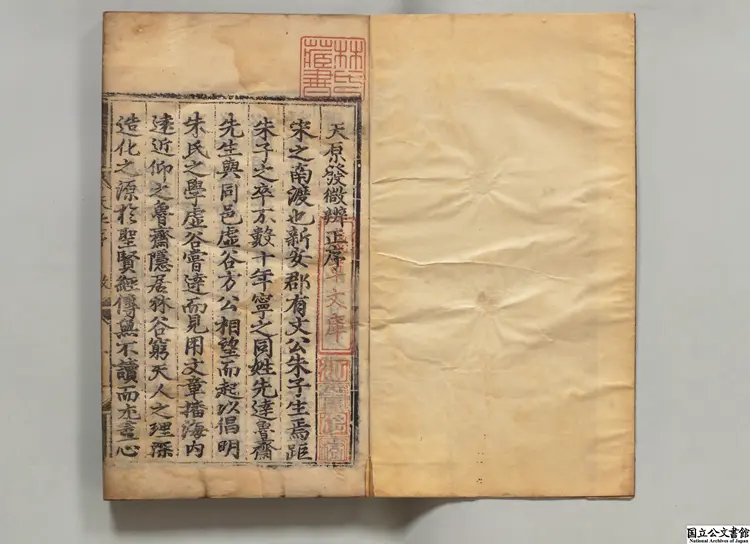 天原發微辨正序
宋之南渡也新安郡有文公朱子生焉距
朱子之卒不數十年寧之同姓先達魯齋
先生與同邑虛谷方公相望而起以倡明
朱氏之學虛谷嘗達而見用文章播海内
遠近仰之魯齋隱居林谷窮天人之理深
造化之源於聖賢經傳無不讀而尤盡心
林氏
藏書
文庫
国立公文書館
National Archives of Japan